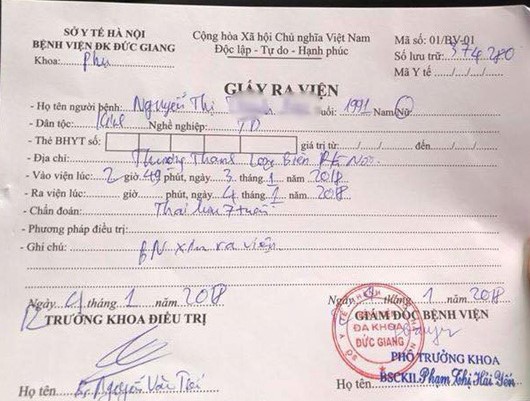 SỞ Y TẾ HÀ NỘI
BỆNH VIỆN ĐK ĐỨC GIANG
Khoa: Phụ
Cộng hòa Xã hội Chủ nghĩa Việt Nam
Độc lập - Tự do - Hạnh phúc
Mã số: 01/BV-01
Số lưu trữ: 374280
Mã Y tế ....../....../......
GIẤY RA VIỆN
- Họ tên người bệnh: Nguyễn Thị tuổi: 1991 Nam/Nữ
- Dân tộc: Kinh Nghề nghiệp: TD
- Thẻ BHYT số: giá trị từ: ....../....../...... đến ....../....../......
- Địa chỉ: Thượng Thanh Long Biên Hà Nội
- Vào viện lúc: 2 giờ 49 phút, ngày 3 tháng 1 năm 2018
- Ra viện lúc: giờ phút, ngày 4 tháng 1 năm 2018
- Chẩn đoán: Thai lưu 7 tuần
- Phương pháp điều trị:
- Ghi chú: BN xin ra viện
Ngày 4 tháng 1 năm 2018
TRƯỞNG KHOA ĐIỀU TRỊ
Họ tên Nguyễn Văn
Ngày 4 tháng 1 năm 2018
GIÁM ĐỐC BỆNH VIỆN
ĐA KHOA
ĐỨC GIANG
PHÓ TRƯỞNG KHOA
Họ tên BSCKII. Phạm Thị Hải Yến